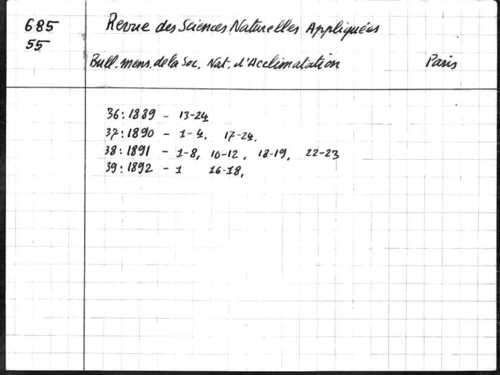 685 Revue des Sciences Naturelles Appliquées
55
Bull. mens. de la Soc. Nat. d'Acclimatation Paris
36: 1889 - 13-24
37: 1890 - 1-4, 17-24.
38: 1891 - 1-8, 10-12, 18-19, 22-23
39: 1892 - 1 16-18,